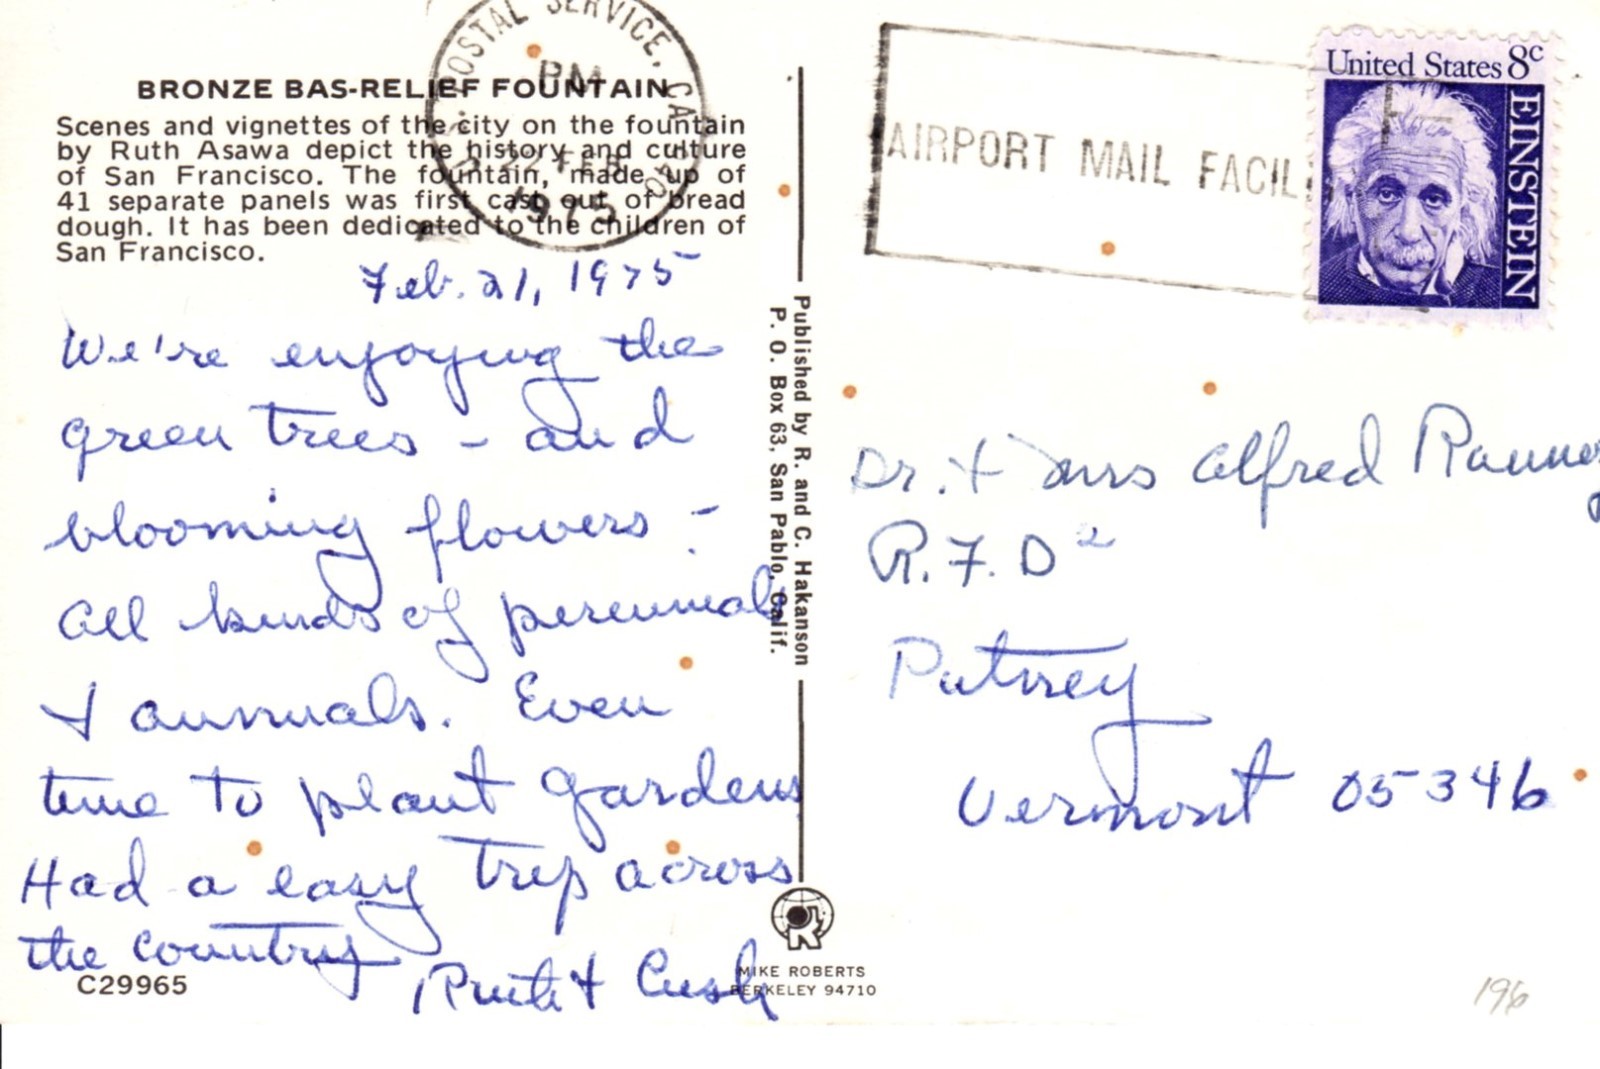 BRONZE BAS-RELIEF FOUNTAIN
Scenes and vignettes of the city on the fountain
by Ruth Asawa depict the history and culture
of San Francisco. The fountain, made up of
41 separate panels was first cast out of bread
dough. It has been dedicated to the children of
San Francisco.
POSTAL SERVICE, CA
PM
FEB
1975
Feb. 21, 1975
We're enjoying the
green trees - and
blooming flowers -
all kinds of perennials
+ annuals. Even
time to plant gardens
Had a easy trip across
the country
Ruth + Cush
C29965
Published by R. and C. Hakanson
P. O. Box 63, San Pablo, Calif.
R
MIKE ROBERTS
BERKELEY 94710
AIRPORT MAIL FACIL
United States 8c
EINSTEIN
Dr. + Mrs Alfred Ranney
R.F.D 2
Putney
Vermont 05346
196